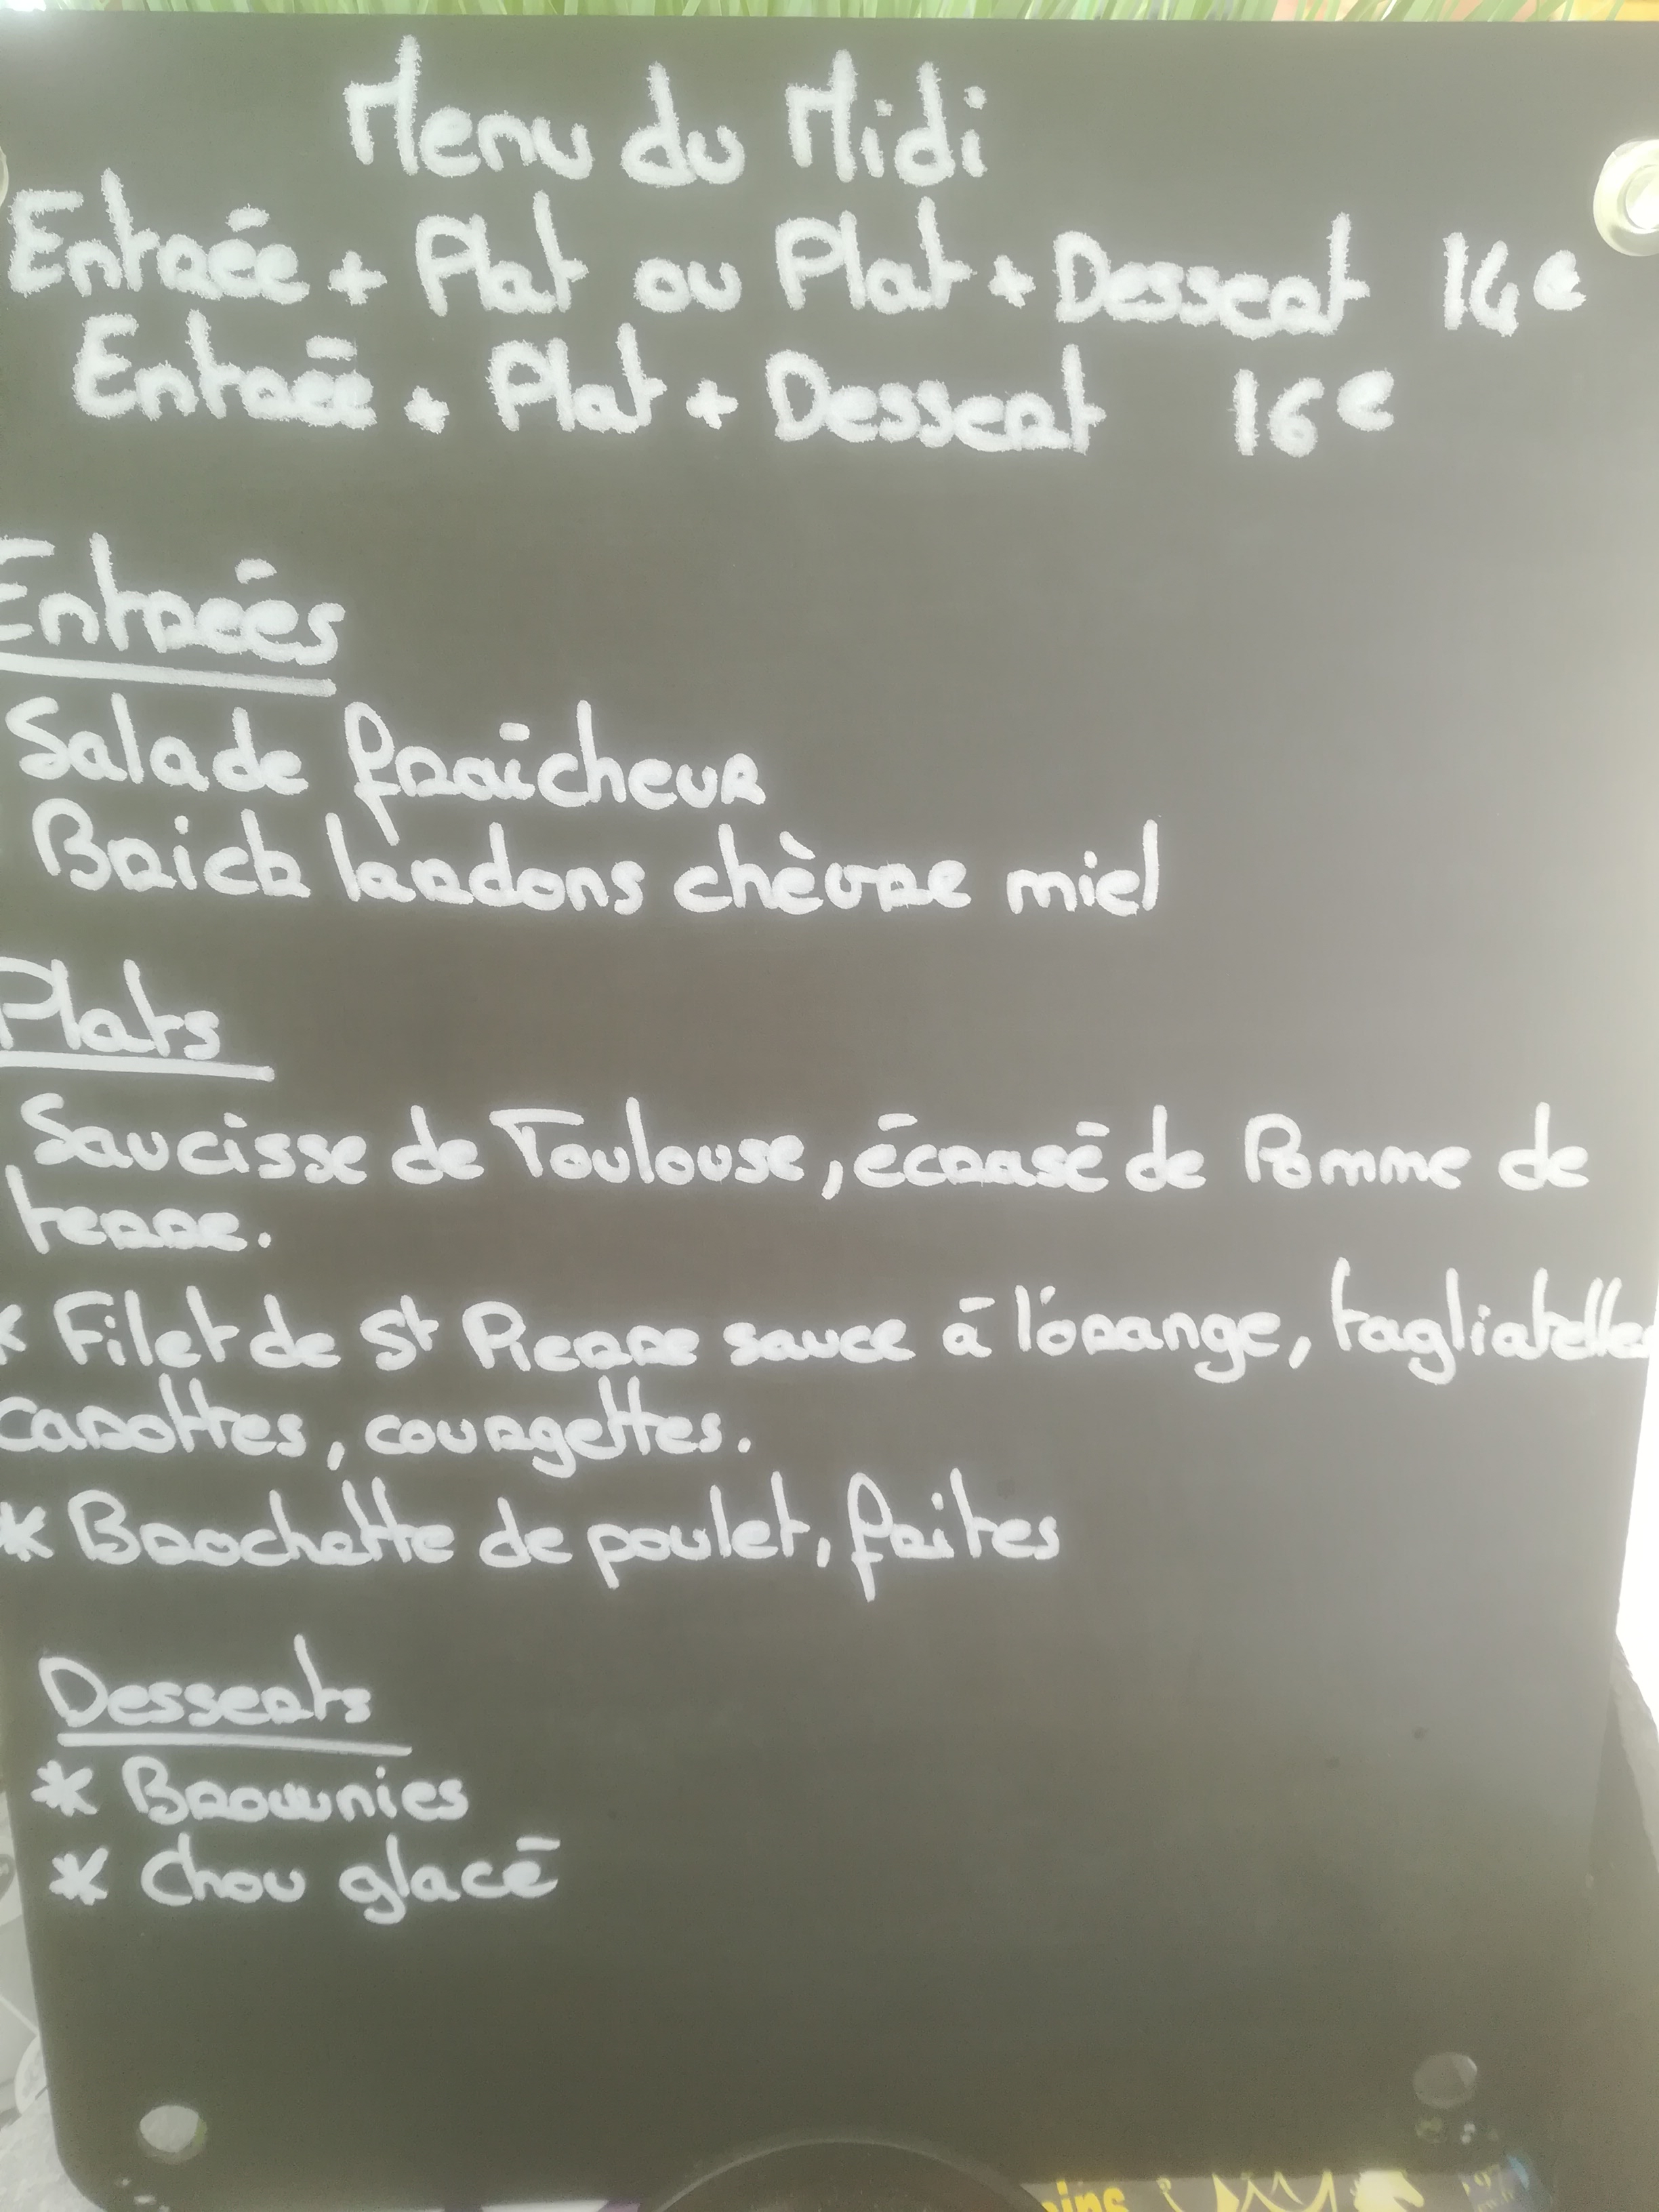 Menu du Midi
Entrée + Plat ou Plat + Dessert 14€
Entrée + Plat + Dessert 16€
Entrées
Salade fraicheur
Brick lardons chèvre miel
Plats
Saucisse de Toulouse, écrasé de Pomme de
terre.
* Filet de St Pierre sauce à l'orange, tagliatelles
carottes, courgettes.
* Brochette de poulet, frites
Desserts
* Brownies
* Chou glacé